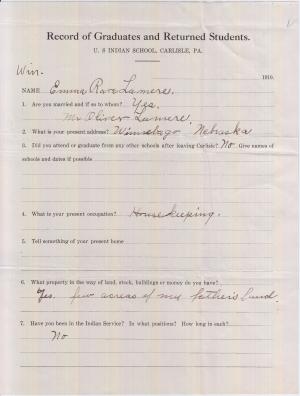 Record of Graduates and Returned Students.
U. S INDIAN SCHOOL, CARLISLE, PA.
Win. 1910.
NAME Emma Rave Lamere.
1. Are you married and if so to whom? Yes.
Mr Oliver Lamere.
2. What is your present address? Winnebago, Nebraska
3. Did you attend or graduate from any other schools after leaving Carlisle? No. Give names of
schools and dates if possible
4. What is your present occupation? Housekeeping.
5. Tell something of your present home
6. What property in the way of land, stock, buildings or money do you have?
Yes. few acreas of my father's land.
7. Have you been in the Indian Service? In what positions? How long in each?
No